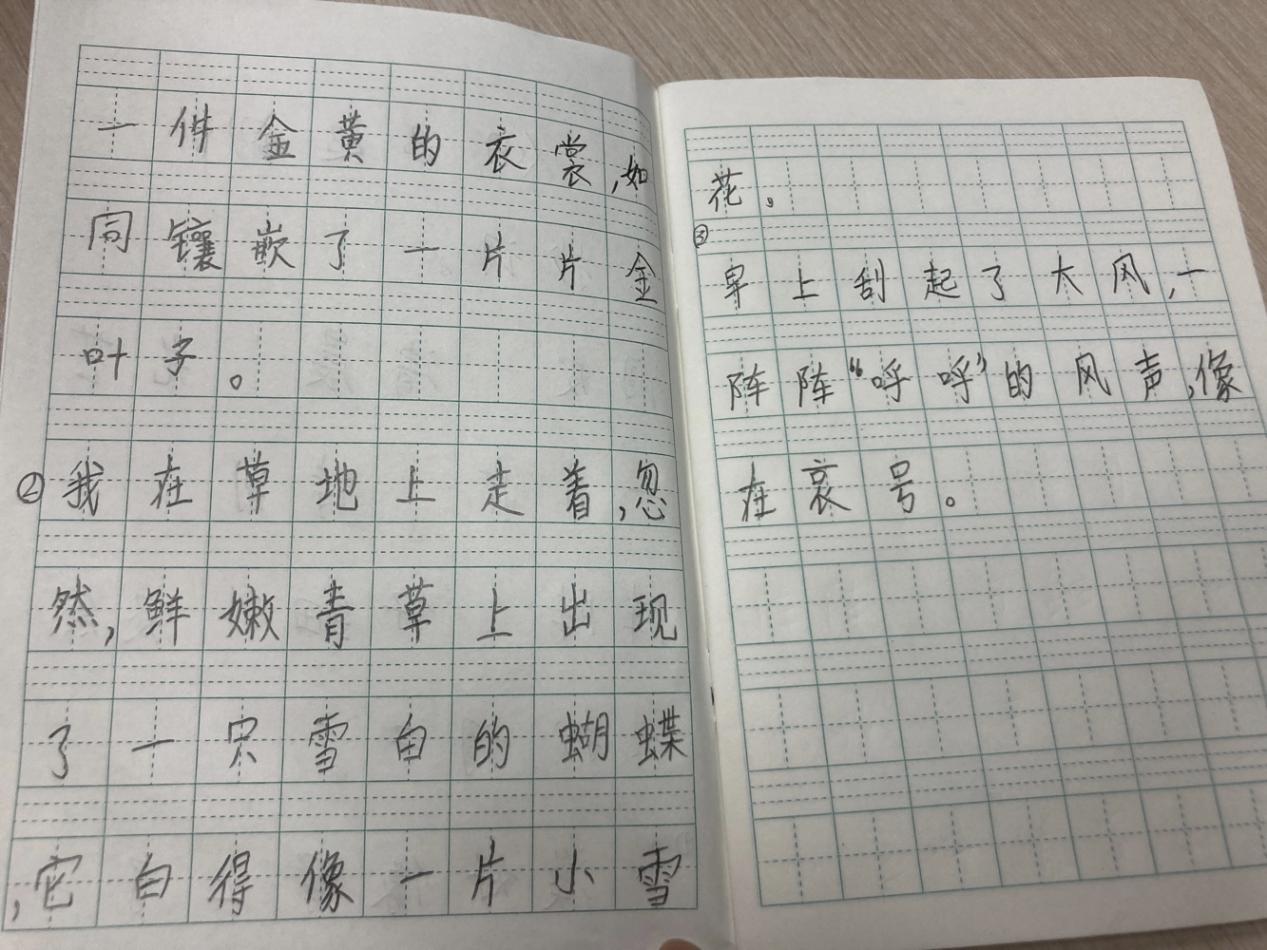 一件金黄的衣裳,如
同镶嵌了一片片金
叶子。
②我在草地上走着,忽
然,鲜嫩青草上出现
了一只雪白的蝴蝶
,它白得像一片小雪
花。
③
早上刮起了大风,一
阵阵“呼呼”的风声,像
在哀号。